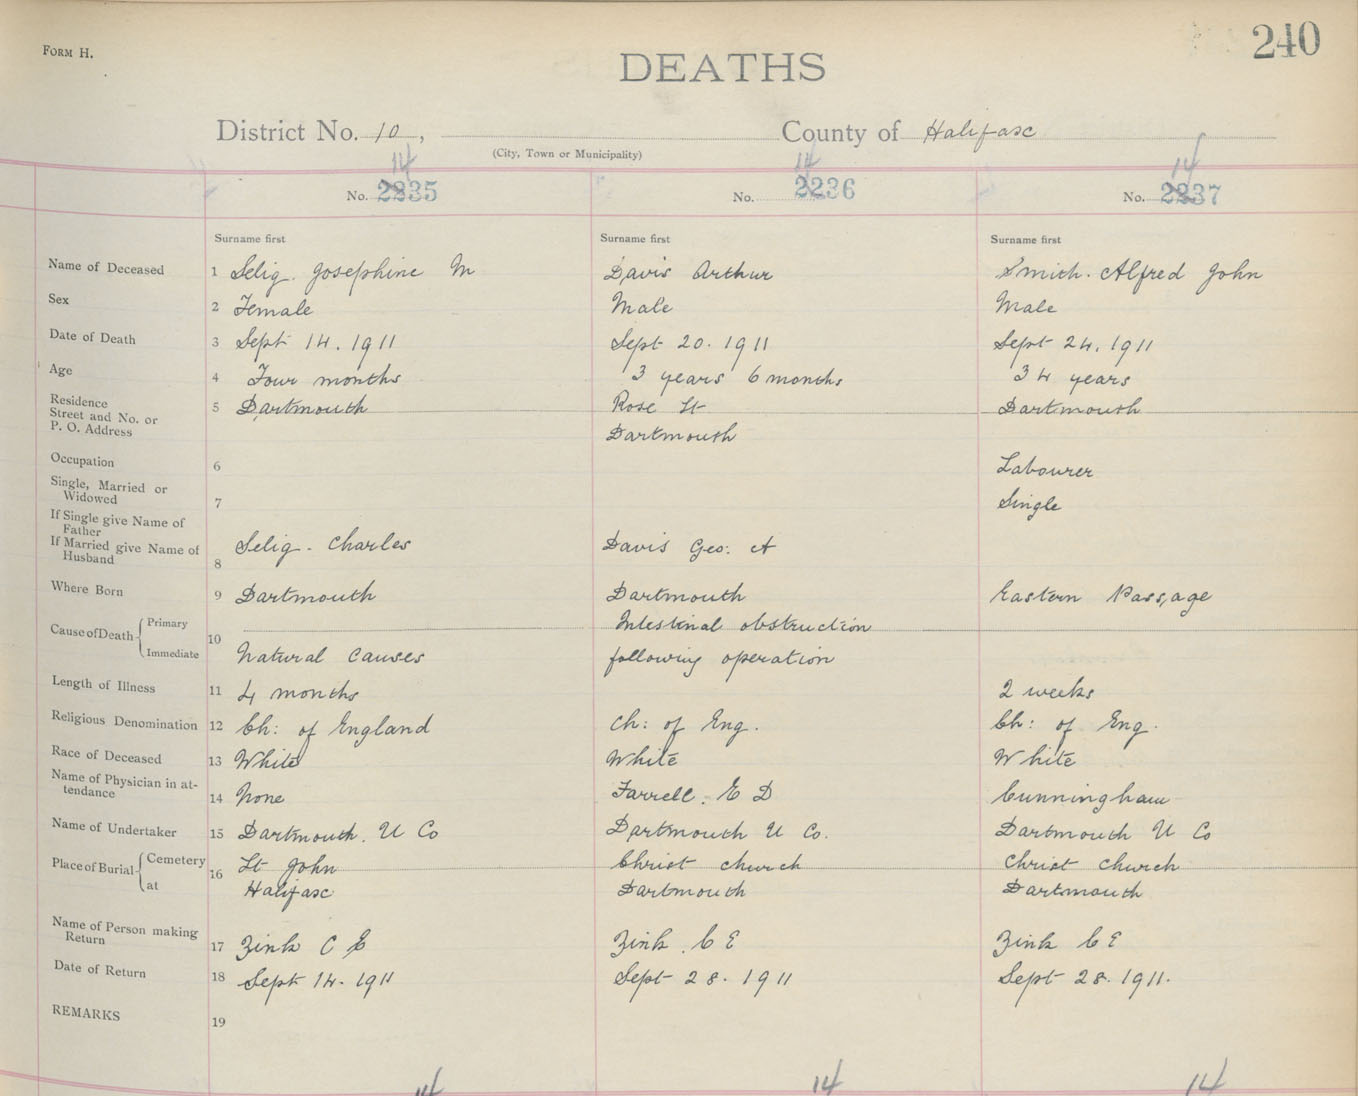 FORM H.
240
DEATHS
District No. 10, County of Halifax
(City, Town or Municipality)
14 14 14
No. 2235 No. 2236 No. 2237
Surname first Surname first Surname first
Name of Deceased 1 Selig. Josephine M Davis Arthur Smith. Alfred John
Sex 2 Female Male Male
Date of Death 3 Sept 14. 1911 Sept 20. 1911 Sept 24. 1911
Age 4 Four months 3 years 6 months 34 years
Residence 5 Dartmouth Rose St Dartmouth
Street and No. or
P. O. Address Dartmouth
Occupation 6 Labourer
Single, Married or
Widowed 7 Single
If Single give Name of
Father
If Married give Name of Selig. Charles Davis Geo: A
Husband 8
Where Born 9 Dartmouth Dartmouth Eastern Passage
Cause of Death Primary 10 Intestinal obstruction
Immediate Natural Causes following operation
Length of Illness 11 4 months 2 weeks
Religious Denomination 12 Ch: of England Ch: of Eng. Ch: of Eng.
Race of Deceased 13 White White White
Name of Physician in at-
tendance 14 None Farrell. E D Cunningham
Name of Undertaker 15 Dartmouth. U Co Dartmouth U Co. Dartmouth U Co
Place of Burial Cemetery 16 St John Christ Church Christ Church
at Halifax Dartmouth Dartmouth
Name of Person making
Return 17 Zink C E Zink. C E Zink C E
Date of Return 18 Sept 14. 1911 Sept 28. 1911 Sept 28. 1911.
REMARKS 19
14 14 14